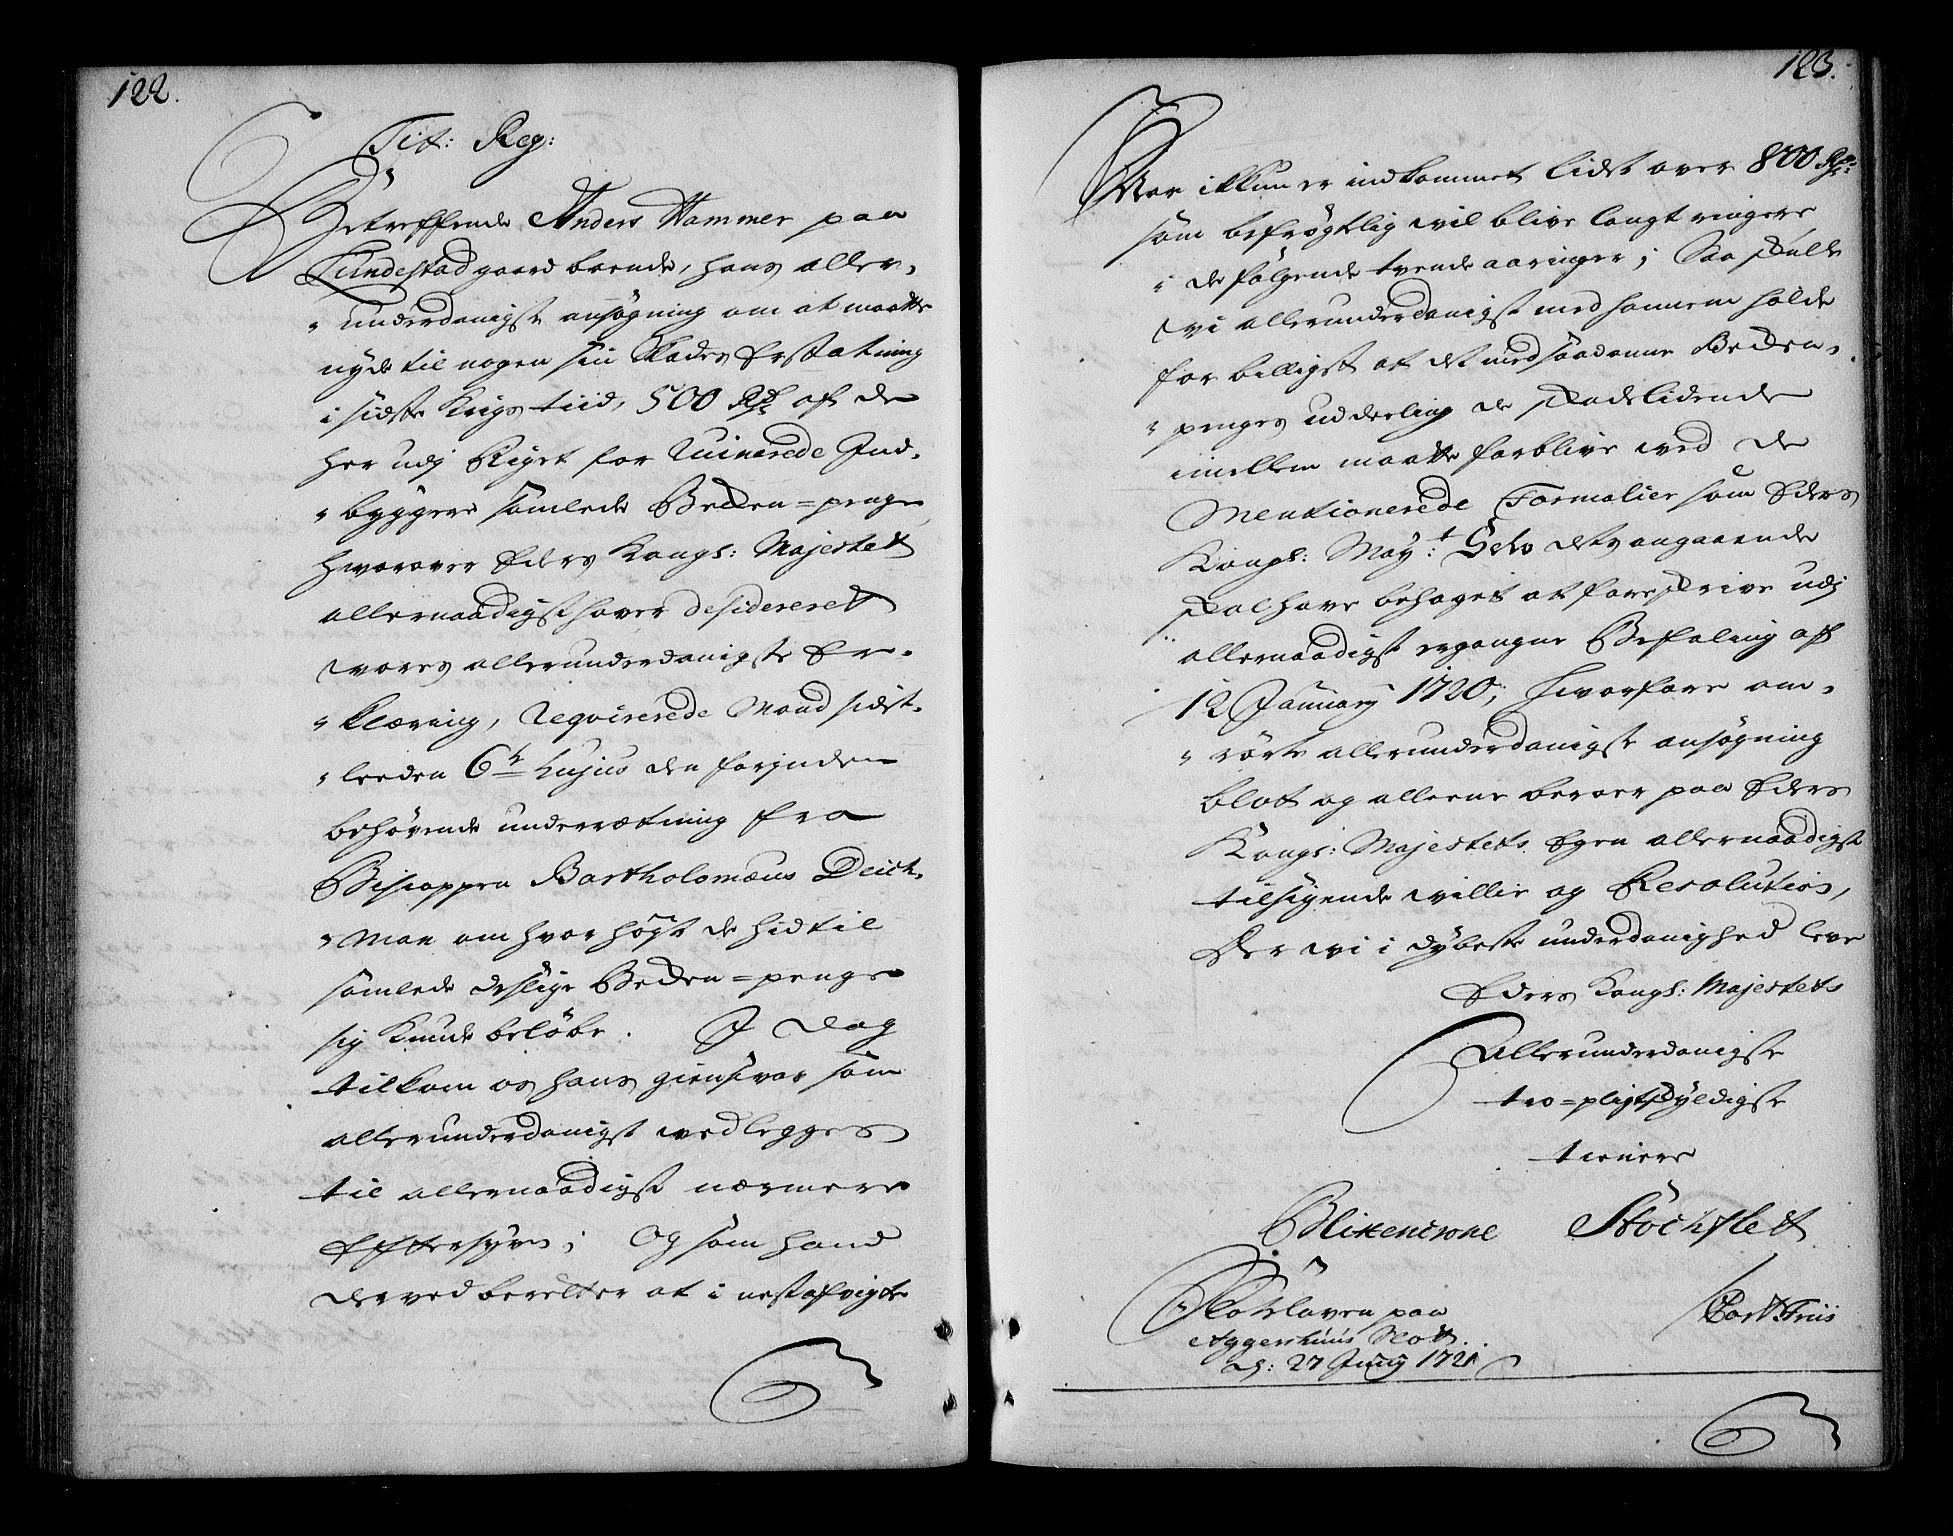 122.
Tit: Reg:
Betreffende Anders Hammer paa
Lundestad gaard boende, hans aller-
underdanigste ansøgning om at maatte
nyde til nogen sin Skades Erstatning
i sidste Krigs tiid, 500 Rdr af de
her udj Riget for Ruinerede Ind-
byggere samlede Bekken=penge
hvorover Eders Kongl: Majestet
allernaadigst haver desidereret
vores allerunderdanigste Er-
klæring, Reqvirerede Mand sidst-
leeden 6te hujus den forinden
behøvende underretning fra
Biscoppen Bartholomæus Deich-
Man om hvor høyt de hidtil
samlede deslige Bekken=penge
sig kunde beløbe. I dag
tilkom os hans giensvar som
allerunderdanigst vedlegges
til allernaadigst nærmere
Eftersyn; Og som hand
derved beretter at i nestafvigte
123.
Aar ikkun er indkommet lidet over 800 Rdr
som befrøgtlig vil blive langt ringere
i de følgende tvende aaringer; Saa skulle
vi allerunderdanigst med hannem holde
for billigst at det med saadanne Bekken-
penges uddeeling de skadelidende
imellem maatte forblive ved de
Mentionerede Formalier som Eders
Kongl: Mayt: Selv detangaaende
skal have behaget at foreskrive udj
allernaadigst ergangne Befaling af
12 January 1720; hvorfore om-
rørte allerunderdanigste ansøgning
blot og alleene beroer paa Eders
Kongl: Majestets Egen allernaadigst
tilsigende villie og Resolution,
Der vi i dybeste underdanighed leve
Eders Kongl: Majestets
Allerunderdanigste
tro=pligtskyldigste
tienere
Blixencrone Stöckflett
Slotsloven paa
Bort Friis
Aggershuus Slott
d: 27 Juny 1721